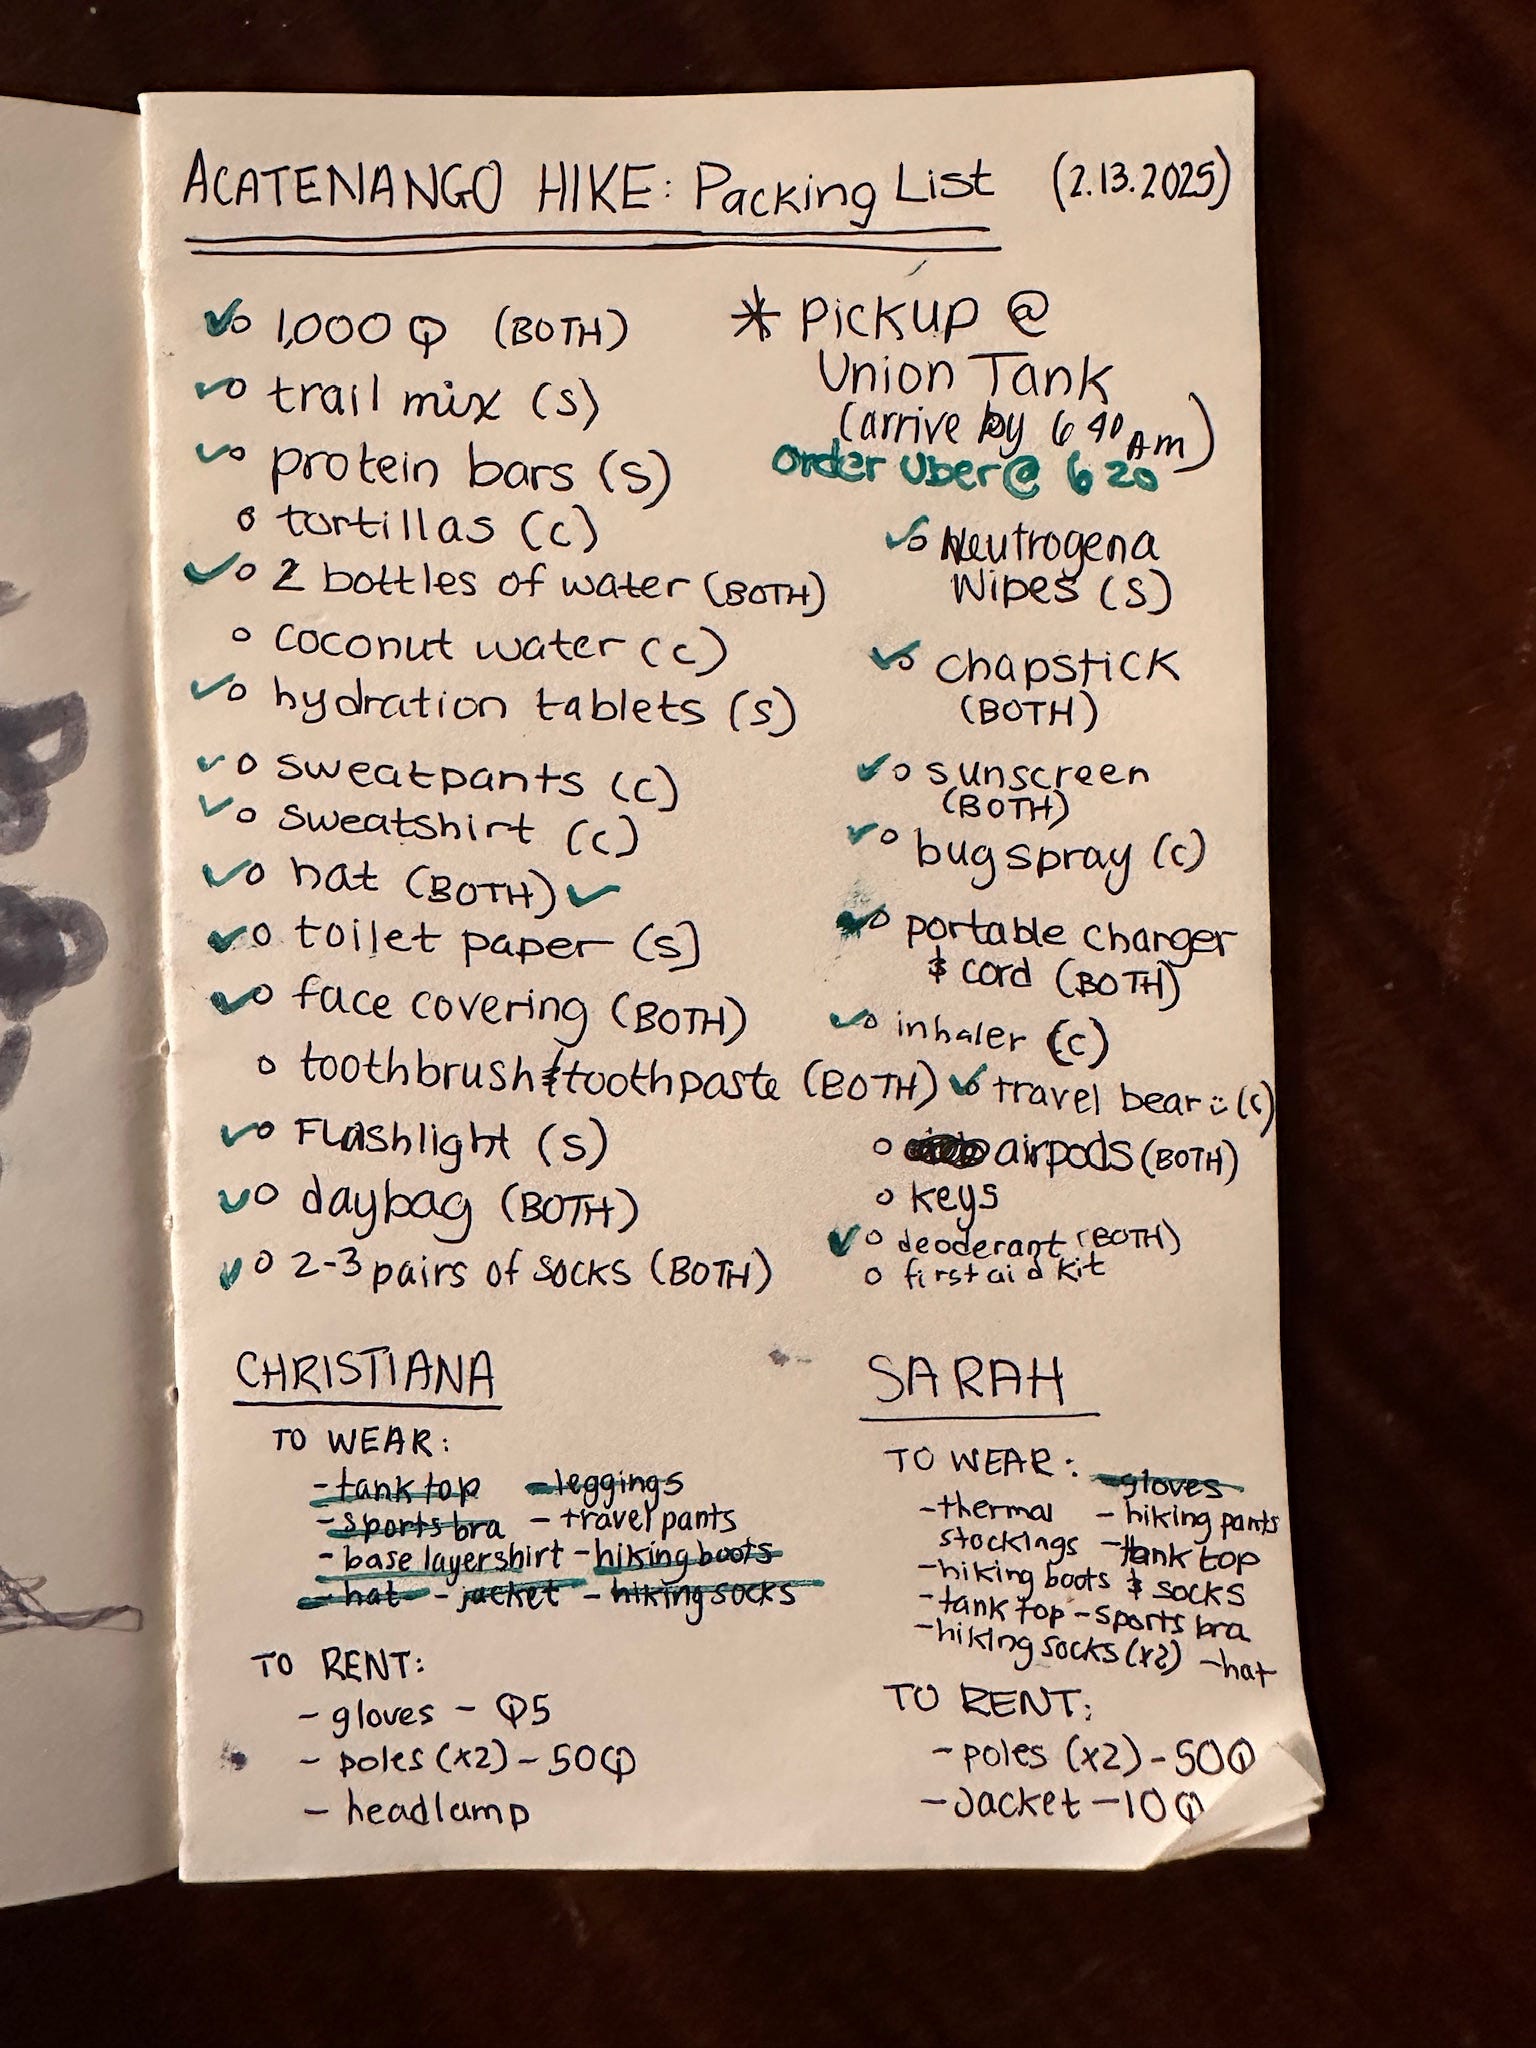 ACATENANGO HIKE: Packing List (2.13.2025)
1,000 Q (BOTH)
trail mix (S)
protein bars (S)
tortillas (C)
2 bottles of water (BOTH)
coconut water (C)
hydration tablets (S)
sweatpants (C)
sweatshirt (C)
hat (BOTH)
toilet paper (S)
face covering (BOTH)
toothbrush & toothpaste (BOTH)
Flashlight (S)
daybag (BOTH)
2-3 pairs of socks (BOTH)
* Pickup @
Union Tank
(arrive by 6 40 AM)
Order Uber @ 6 20
Neutrogena
Wipes (S)
Chapstick
(BOTH)
sunscreen
(BOTH)
bug spray (C)
portable charger
& cord (BOTH)
inhaler (C)
travel bear :) (C)
airpods (BOTH)
keys
deoderant (BOTH)
first aid kit
CHRISTIANA
TO WEAR:
- tank top - leggings
- sports bra - travel pants
- base layer shirt - hiking boots
- hat - jacket - hiking socks
TO RENT:
- gloves - Q5
- poles (x2) - 50Q
- headlamp
SARAH
TO WEAR: - gloves
- thermal - hiking pants
stockings - tank top
- hiking boots & socks
- tank top - sports bra
- hiking socks (x2) - hat
TO RENT:
- poles (x2) - 50Q
- Jacket - 10Q